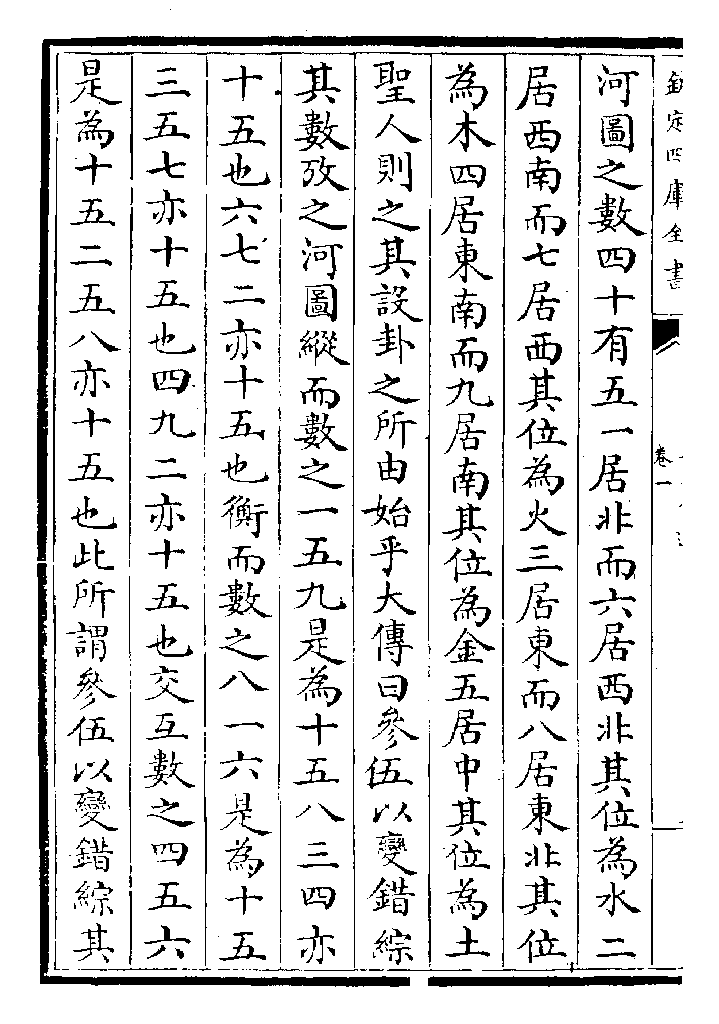 欽定四庫全書
卷一
河圖之數四十有五一居北而六居西北其位為水二
居西南而七居西其位為火三居東而八居東北其位
為木四居東南而九居南其位為金五居中其位為土
聖人則之其設卦之所由始乎大傳曰參伍以變錯綜
其數攷之河圖縱而數之一五九是為十五八三四亦
十五也六七二亦十五也衡而數之八一六是為十五
三五七亦十五也四九二亦十五也交互數之四五六
是為十五二五八亦十五也此所謂參伍以變錯綜其